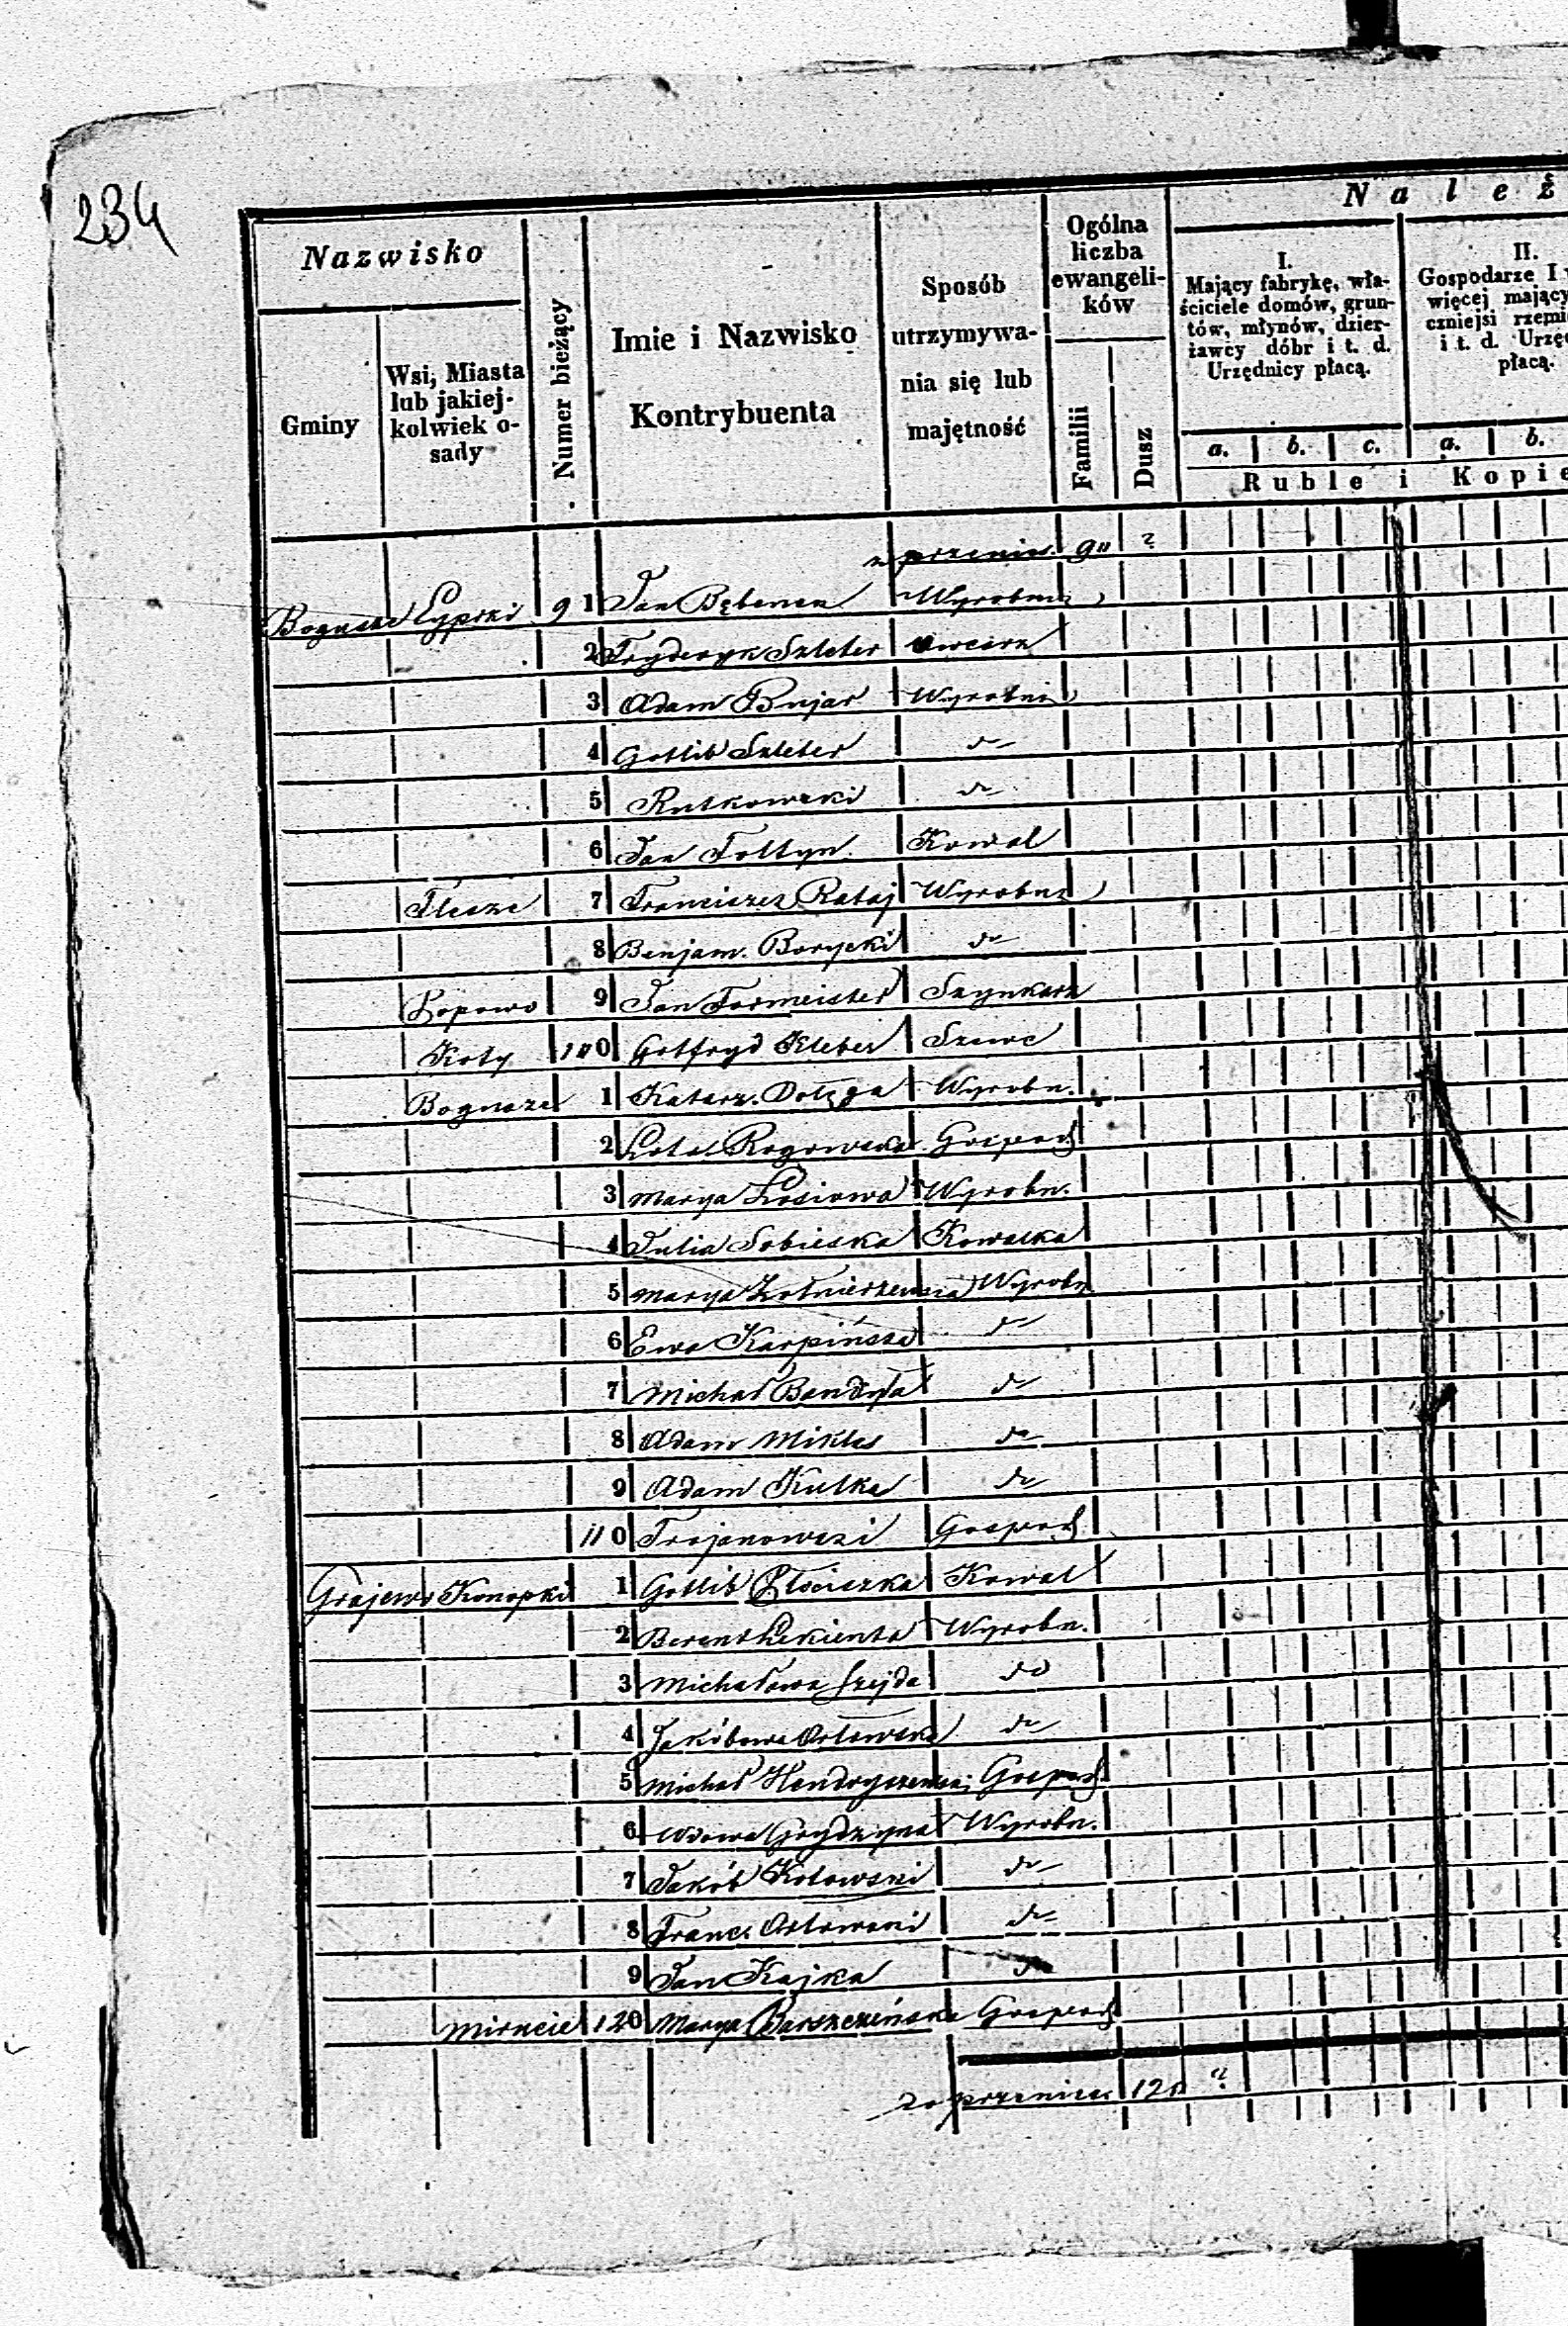 234
Nazwisko
Gminy
Wsi, Miasta lub jakiej- kolwiek o- sady
Numer bieżący
Imie i Nazwisko
Kontrybuenta
Sposób utrzymywa- nia się lub majętność
Ogólna liczba ewangeli- ków
Familii
Dusz
N a l e ż
I.
Mający fabrykę, wła-
ściciele domów, grun-
tów, młynów, dzier-
żawcy dóbr i t. d.
Urzędnicy płacą.
II.
Gospodarze I
więcej mający
czniejsi rzemi
i t. d. Urzę
płacą.
a. b. c. a. b.
R u b l e i K o p i e
z przenies. 90 ?
Bogusze Cyprki 91 Jan Bębenek Wyrobni
2 Fryderyk Szleter owcarz
3 Adam Bujar Wyrobni
4 Gotlib Szleter do
5 Rutkowski do
6 Jan Foltyn Kowal
Flesze 7 Franciszek Rataj Wyrobni
8 Benjam. Borycki do
Popowo 9 Jan Formeister Szynkarz
Koty 100 Gotfryd Kleber Szewc
Bogusze 1 Katarz. Dołęga Wyrobn.
2 Rogowska Gospod
3 Marya Łosiowa Wyrobn.
4 Julia Sobieska Kowalka
5 Marya Żołnierzewska Wyrobn
6 Ewa Karpińska do
7 Michał Bandyła do
8 Adam Miklas do
9 Adam Kulka do
110 Trojanowski Gospod
Grajewo Konopki 1 Gotlib Płociszka Kowal
2 Wyrobn.
3 Michałowa Szejda do
4 Jakóbowa Orłowska do
5 Michał Hendryszewski Gospod.
6 Wdowa Grydzyna Wyrobn.
7 Jakób Kotowski do
8 Franc. Orłowski do
9 Jan Kajka do
Mirucie 120 Marya Barszczeńska Gospod
do przenies. 120 ?